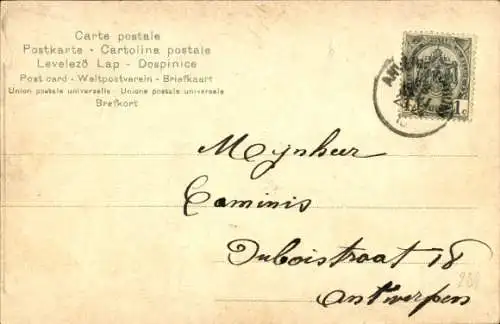 Carte postale
Postkarte - Cartolina postale
Levelező Lap - Dospinice
Post card - Weltpostverein - Briefkaart
Union postale universelle - Unione postale universale
Brefkort
1c
Mynheer
Caminis
Duboistraat 18
Antwerpen